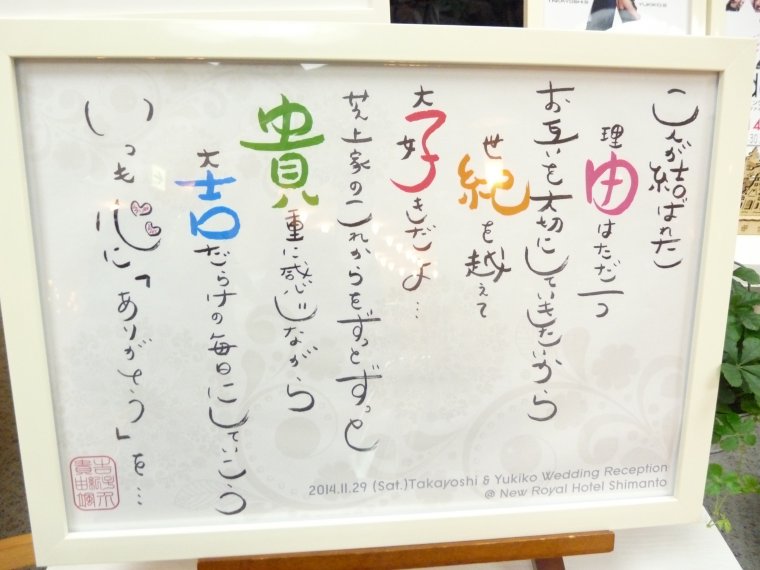 二人が結ばれた
理由はただ一つ
お互いを大切にしていきたいから
世紀を越えて
大好きだよ…
上家のこれからをずっとずっと
貴重に感じながら
大吉だらけの毎日にしていこう
いつも心に「ありがとう」を…
2014.11.29 (Sat.)Takayoshi & Yukiko Wedding Reception
@ New Royal Hotel Shimanto